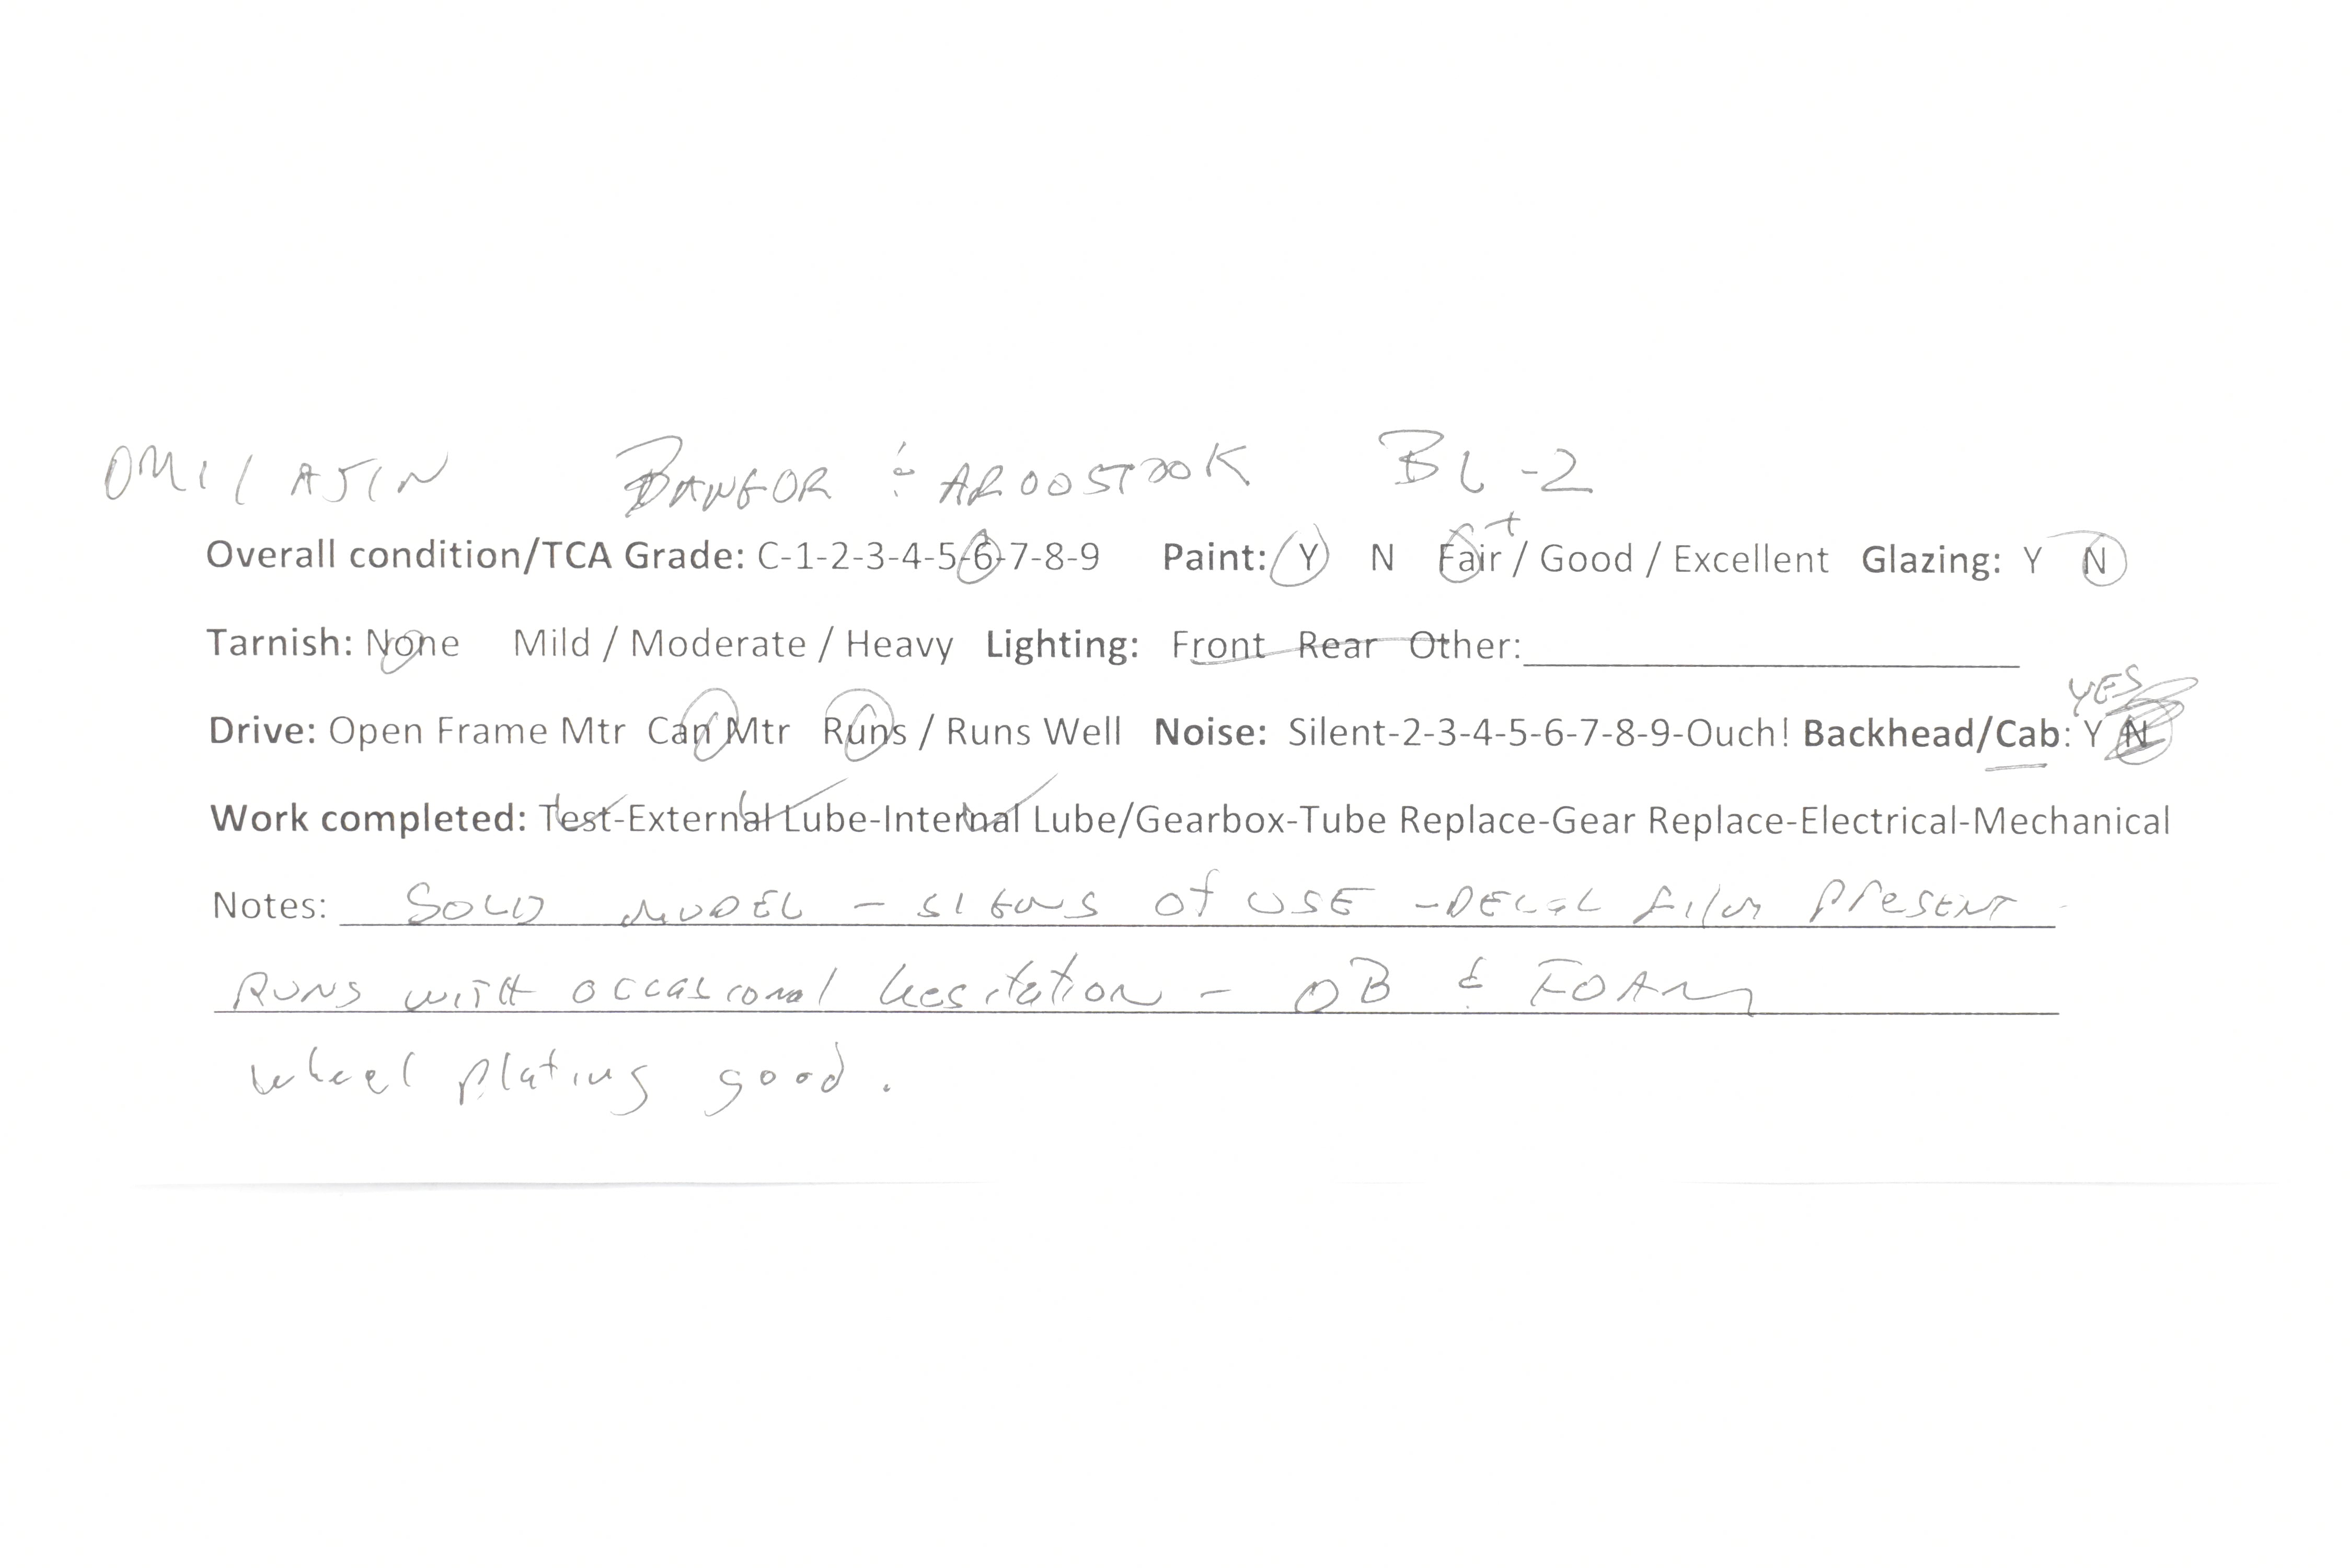 OMI / AJIN BANGOR & AROOSTOOK BL-2
Overall condition/TCA Grade: C-1-2-3-4-5-6-7-8-9 Paint: Y N Fair+ / Good / Excellent Glazing: Y N
Tarnish: None Mild / Moderate / Heavy Lighting: Front Rear Other:
YES
Drive: Open Frame Mtr Can Mtr Runs / Runs Well Noise: Silent-2-3-4-5-6-7-8-9-Ouch! Backhead/Cab: Y N
Work completed: Test-External Lube-Internal Lube/Gearbox-Tube Replace-Gear Replace-Electrical-Mechanical
Notes: SOLID MODEL - SIGNS of USE - DECAL film Present
RUNS WITH occasional hesitation - OB & FOAM
wheel plating good.